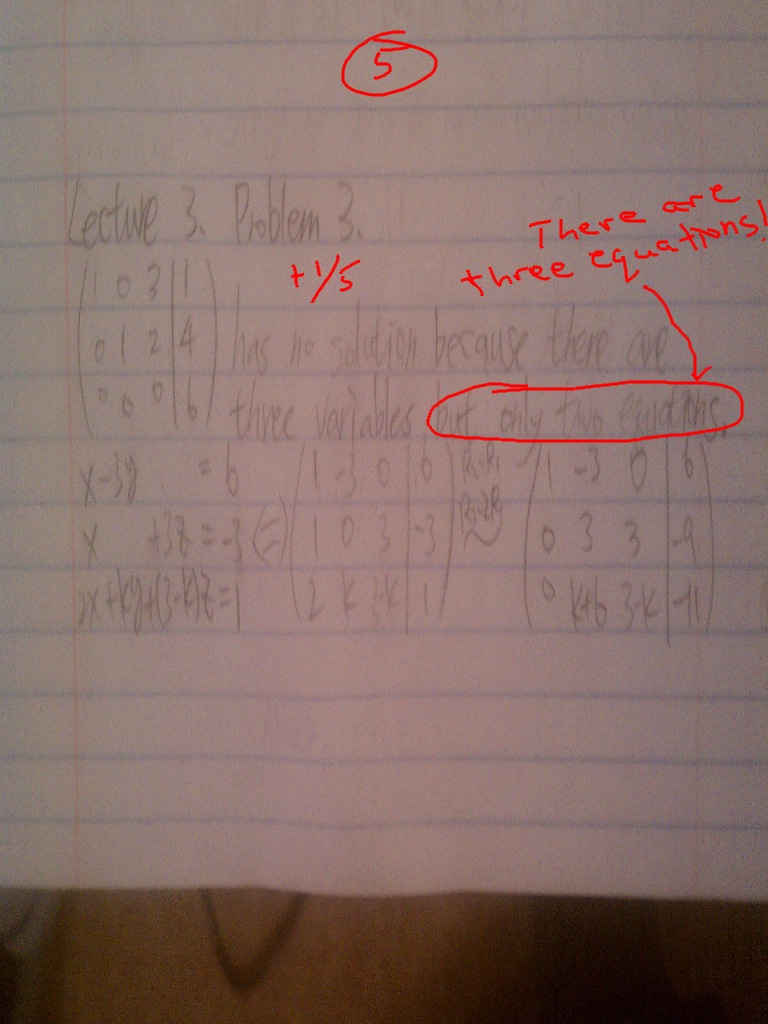 5
Lecture 3. Problem 3.
There are
three equations!
+1/5
1 0 3 | 1
0 1 2 | 4
0 0 0 | 6
has no solution because there are
three variables, but only two equations.
x-3y = 6
x +3z = -3
2x+ky+(3-k)z=1
(=)
1 -3 0 | 6
1 0 3 | -3
2 k 3-k | 1
1 -3 0 | 6
0 3 3 | -9
0 k+6 3-k | -11